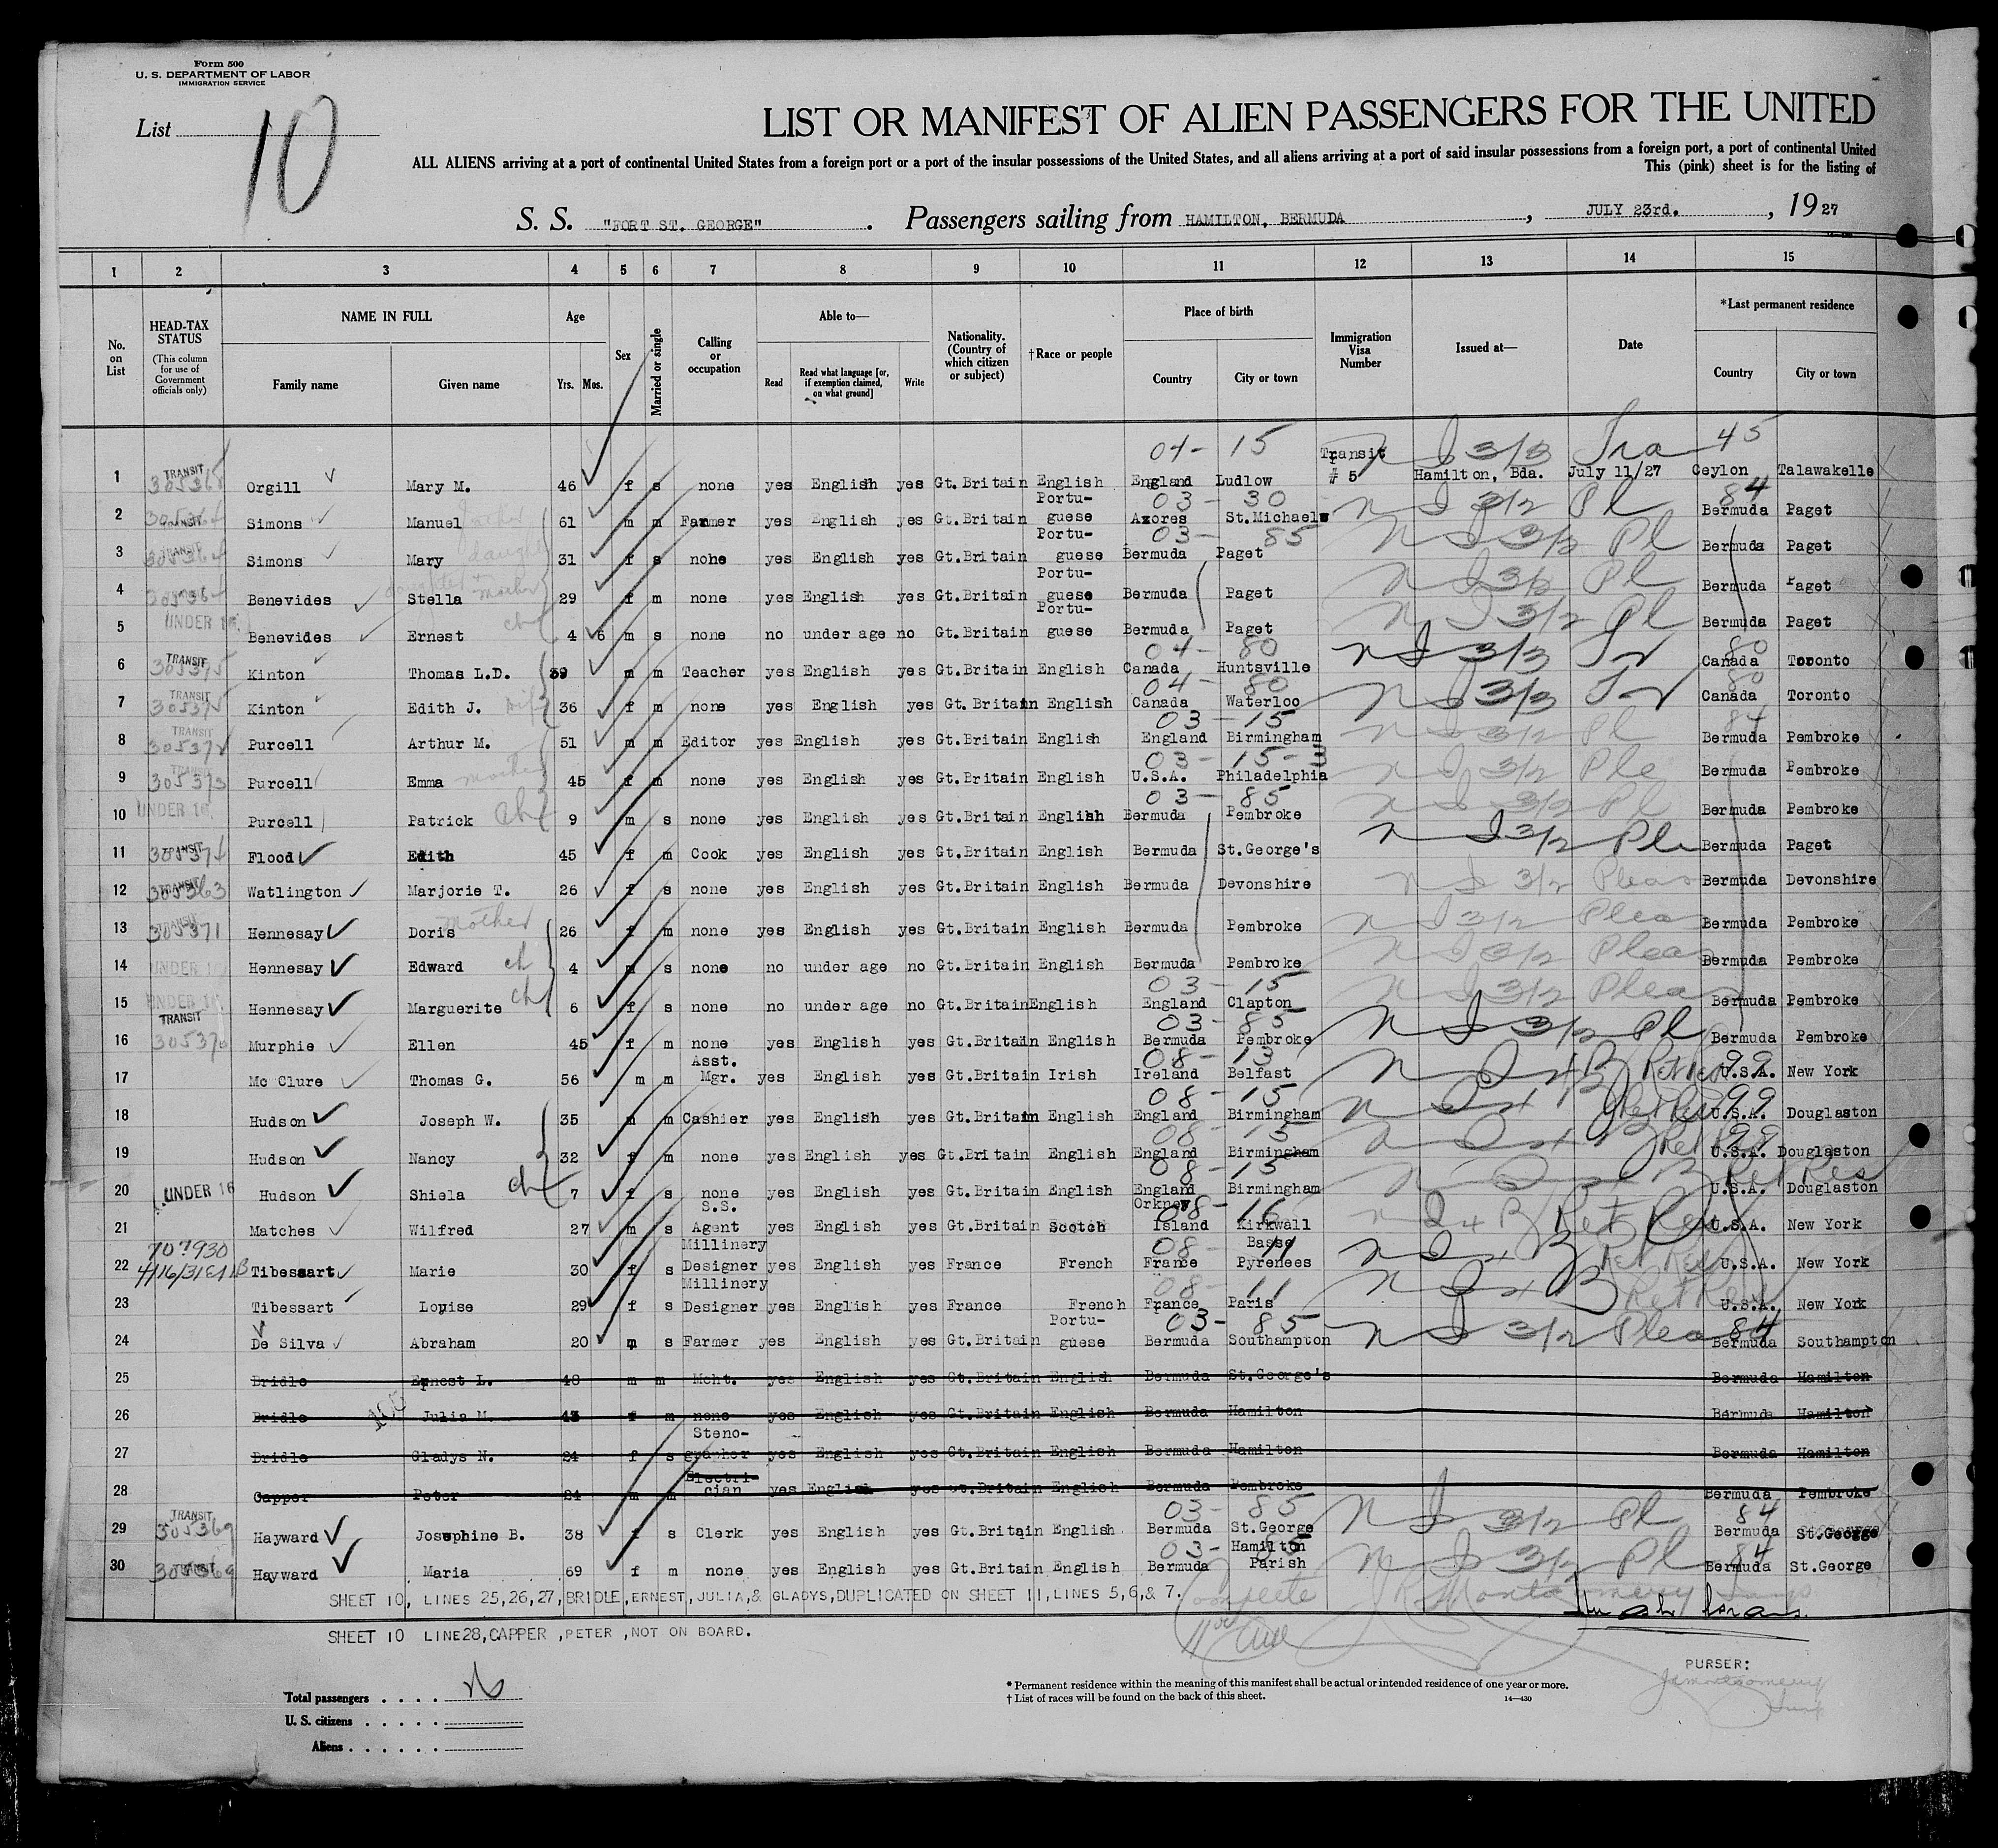 Form 500
U. S. DEPARTMENT OF LABOR
IMMIGRATION SERVICE
List 10
LIST OR MANIFEST OF ALIEN PASSENGERS FOR THE UNITED
ALL ALIENS arriving at a port of continental United States from a foreign port or a port of the insular possessions of the United States, and all aliens arriving at a port of said insular possessions from a foreign port, a port of continental United
This (pink) sheet is for the listing of
S. S. "FORT ST. GEORGE". Passengers sailing from HAMILTON, BERMUDA, JULY 23rd., 1927
1 2 3 4 5 6 7 8 9 10 11 12 13 14 15
No. on List
HEAD-TAX STATUS (This column for use of Government officials only)
NAME IN FULL
Family name Given name
Age
Yrs. Mos.
Sex
Married or single
Calling or occupation
Able to—
Read Read what language [or, if exemption claimed, on what ground] Write
Nationality. (Country of which citizen or subject)
†Race or people
Place of birth
Country City or town
Immigration Visa Number
Issued at—
Date
*Last permanent residence
Country City or town
04- 15 Transit N I 3/3 Tra 45
1 TRANSIT 305368 Orgill Mary M. 46 f s none yes English yes Gt.Britain English England Ludlow # 5 Hamilton, Bda. July 11/27 Ceylon Talawakelle
03- 30 84
2 TRANSIT Simons Manuel 61 m m Farmer yes English yes Gt.Britain Portu-guese Azores St.Michaels N I 3/2 Pl Bermuda Paget
03- 85
3 TRANSIT 305364 Simons Mary daught 31 f s none yes English yes Gt.Britain Portu-guese Bermuda Paget N I 3/2 Pl Bermuda Paget
4 305364 Benevides Stella daughter + mother 29 f m none yes English yes Gt.Britain Portu-guese Bermuda Paget N I 3/2 Pl Bermuda Paget
5 UNDER 16 Benevides Ernest ch 4 6 m s none no under age no Gt.Britain Portu-guese Bermuda Paget N I 3/2 Pl Bermuda Paget
04- 80 80
6 TRANSIT 305375 Kinton Thomas L.D. 39 m m Teacher yes English yes Gt.Britain English Canada Huntsville N I 3/3 Tr Canada Toronto
04- 80 80
7 TRANSIT 305375 Kinton Edith J. wife 36 f m none yes English yes Gt.Britain English Canada Waterloo N I 3/3 Tr Canada Toronto
03- 15 84
8 TRANSIT 305372 Purcell Arthur M. 51 m m Editor yes English yes Gt.Britain English England Birmingham N I 3/2 Pl Bermuda Pembroke
03- 15-3
9 TRANSIT 305373 Purcell Emma mother 45 f m none yes English yes Gt.Britain English U.S.A. Philadelphia N I 3/2 Ple Bermuda Pembroke
03- 85
10 UNDER 16 Purcell Patrick ch 9 m s none yes English yes Gt.Britain English Bermuda Pembroke N I 3/2 Pl Bermuda Pembroke
11 TRANSIT 305374 Flood Edith 45 f m Cook yes English yes Gt.Britain English Bermuda St.George's N I 3/2 Ple Bermuda Paget
12 TRANSIT 305363 Watlington Marjorie T. 26 f s none yes English yes Gt.Britain English Bermuda Devonshire N I 3/2 Pleas Bermuda Devonshire
13 TRANSIT 305371 Hennesay Doris mother 26 f m none yes English yes Gt.Britain English Bermuda Pembroke N I 3/2 Pleas Bermuda Pembroke
14 UNDER 16 Hennesay Edward ch 4 m s none no under age no Gt.Britain English Bermuda Pembroke N I 3/2 Pleas Bermuda Pembroke
03- 15
15 UNDER 16 Hennesay Marguerite ch 6 f s none no under age no Gt.Britain English England Clapton N I 3/2 Pleas Bermuda Pembroke
03- 85
16 TRANSIT 305370 Murphie Ellen 45 f m none yes English yes Gt.Britain English Bermuda Pembroke N I 3/2 Pl Bermuda Pembroke
08- 13 99
17 Mc Clure Thomas G. 56 m m Asst. Mgr. yes English yes Gt.Britain Irish Ireland Belfast N I 4 B Ret Res U.S.A. New York
08- 15 99
18 Hudson Joseph W. 35 m m Cashier yes English yes Gt.Britain English England Birmingham Ret Res U.S.A. Douglaston
08- 15 99
19 Hudson Nancy 32 f m none yes English yes Gt.Britain English England Birmingham Ret Res U.S.A. Douglaston
08- 15
20 UNDER 16 Hudson Shiela ch 7 f s none yes English yes Gt.Britain English England Birmingham Ret Res U.S.A. Douglaston
08- 16
21 Matches Wilfred 27 m s S.S. Agent yes English yes Gt.Britain Scotch Orkney Island Kirkwall N I 4 B Ret Res U.S.A. New York
707930 08- 11
22 4/16/31 Tibessart Marie 30 f s Millinery Designer yes English yes France French France Basse Pyrenees Ret Res U.S.A. New York
08- 11
23 Tibessart Louise 29 f s Millinery Designer yes English yes France French France Paris Ret Res U.S.A. New York
03- 85 84
24 De Silva Abraham 20 m s Farmer yes English yes Gt.Britain Portu-guese Bermuda Southampton N I 3/2 Pleas Bermuda Southampton
25 Bridle Ernest L. 48 m m Mcht. yes English yes Gt.Britain English Bermuda St.George's Bermuda Hamilton
26 Bridle Julia M. 43 f m none yes English yes Gt.Britain English Bermuda Hamilton Bermuda Hamilton
27 Bridle Gladys N. 24 f s Steno-grapher yes English yes Gt.Britain English Bermuda Hamilton Bermuda Hamilton
28 Capper Peter 24 m m Electri-cian yes English yes Gt.Britain English Bermuda Pembroke Bermuda Pembroke
03- 85 84
29 TRANSIT 305369 Hayward Josephine B. 38 f s Clerk yes English yes Gt.Britain English Bermuda St.George N I 3/2 Pl Bermuda St.George
03- 85 84
30 TRANSIT 305369 Hayward Maria 69 f m none yes English yes Gt.Britain English Bermuda Hamilton Parish N I 3/2 Pl Bermuda St.George
SHEET 10, LINES 25,26,27,BRIDLE,ERNEST,JULIA,& GLADYS,DUPLICATED ON SHEET 11,LINES 5,6,& 7.
SHEET 10 LINE28,CAPPER ,PETER ,NOT ON BOARD.
PURSER:
Total passengers
U. S. citizens
Aliens
* Permanent residence within the meaning of this manifest shall be actual or intended residence of one year or more.
† List of races will be found on the back of this sheet. 14—430